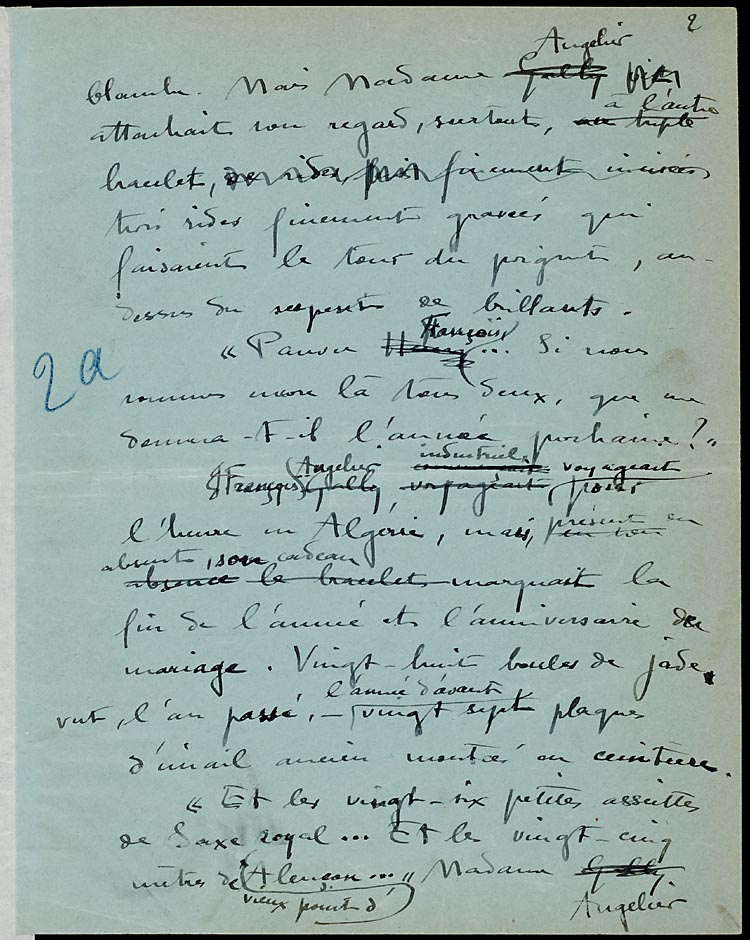 2
Angelier
blanche. Mais Madame Gully
à l'autre
attachait son regard, surtout, au triple
bracelet, de rides finement incisées
trois rides finement gravées qui
faisaient le tour du poignet, au-
dessus du serpent de brillants.
François
« Pauvre Henry... Si nous
2a
sommes encore là tous deux, que me
donnera-t-il l'année prochaine? »
Angelier industriel, voyageait
François Gully voyageait pour
l'heure en Algérie, mais, présent en son
absent, son cadeau
absence le bracelet marquait la
fin de l'année et l'anniversaire du
mariage. Vingt-huit boules de jade
l'année d'avant
vert, l'an passé, – vingt sept plaques
d'émail ancien montées en ceinture.
« Et les vingt-six petites assiettes
de Saxe royal... Et les vingt-cinq
mètres de Alençon... » Madame Gully
vieux point d' Angelier